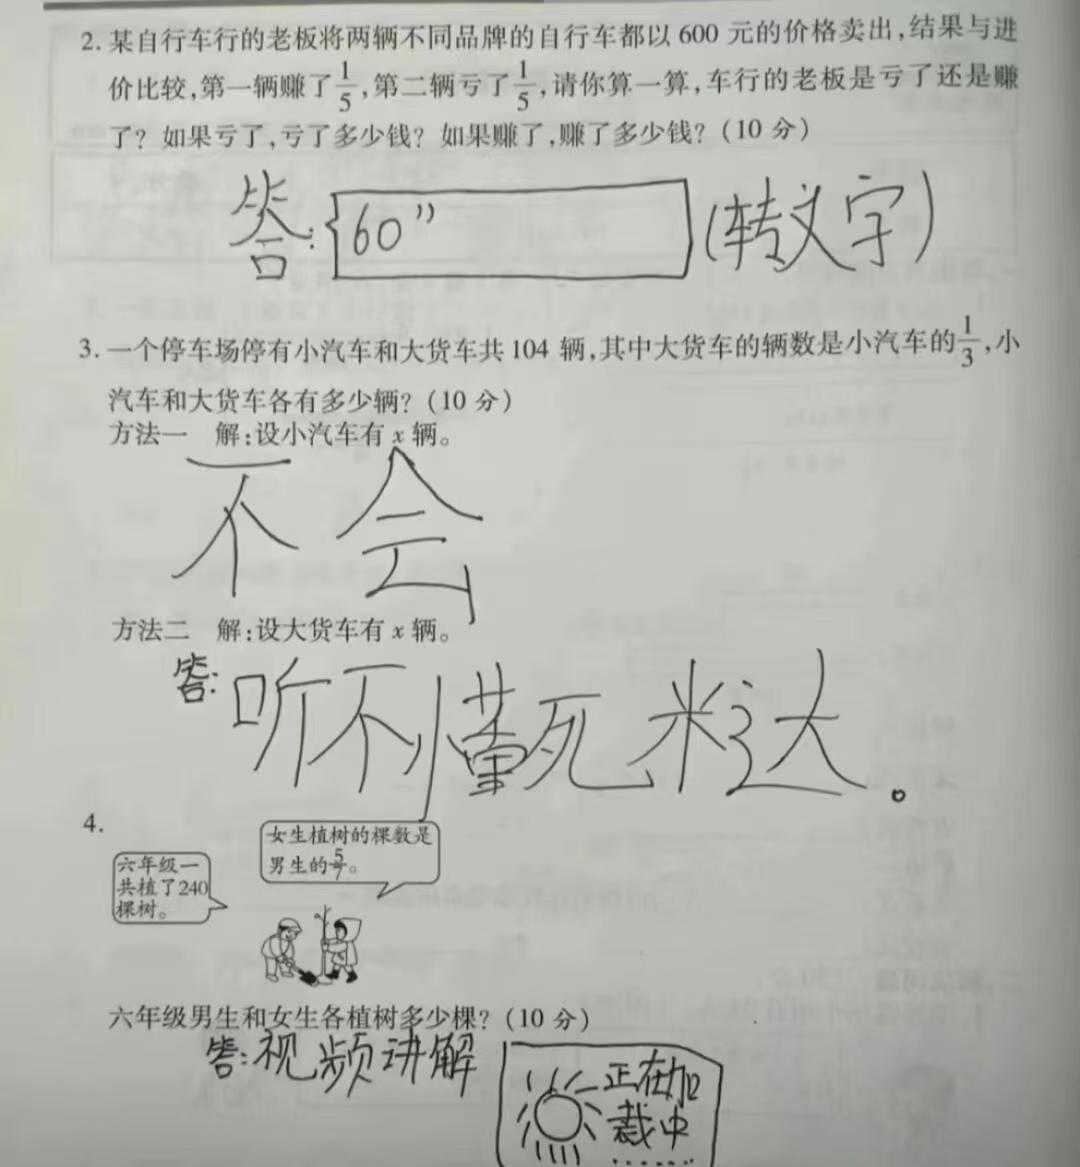 2. 某自行车行的老板将两辆不同品牌的自行车都以 600 元的价格卖出,结果与进
价比较,第一辆赚了1/5,第二辆亏了1/5,请你算一算,车行的老板是亏了还是赚
了? 如果亏了,亏了多少钱? 如果赚了,赚了多少钱? (10 分)
答: 60" (转文字)
3. 一个停车场停有小汽车和大货车共 104 辆,其中大货车的辆数是小汽车的1/3,小
汽车和大货车各有多少辆? (10 分)
方法一 解:设小汽车有 x 辆。
不会
方法二 解:设大货车有 x 辆。
答: 听不懂死米达。
4.
女生植树的棵数是
男生的5/7。
六年级一
共植了240
棵树。
六年级男生和女生各植树多少棵? (10 分)
答: 视频讲解
正在加
载中
......